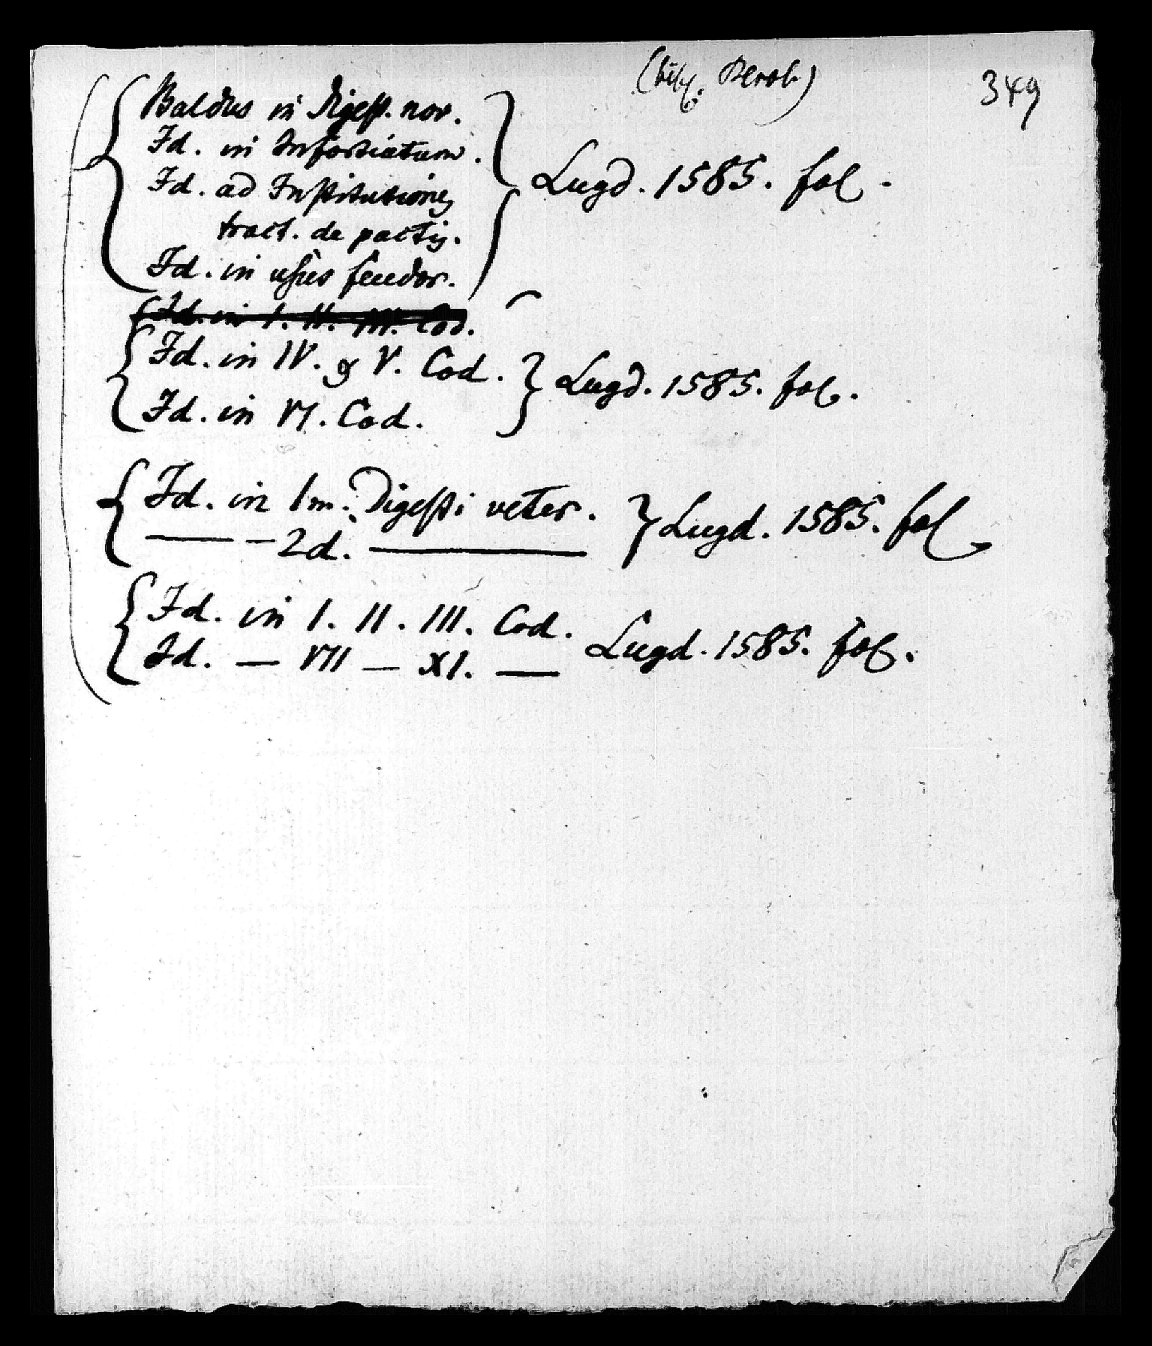 349
Baldus in Digest. nov.
Id. in Infortiatum.
Id. ad Institutiones
tract. de pactis.
Id. in usus feudor.
Lugd. 1585. fol.
Id. in I. II. III. Cod.
Id. in IV. & V. Cod.
Id. in VI. Cod.
Lugd. 1585. fol.
Id. in 1m. Digesti veter.
— — 2d. —
Lugd. 1585. fol.
Id. in I. II. III. Cod.
Id. — VII — XI. —
Lugd. 1585. fol.